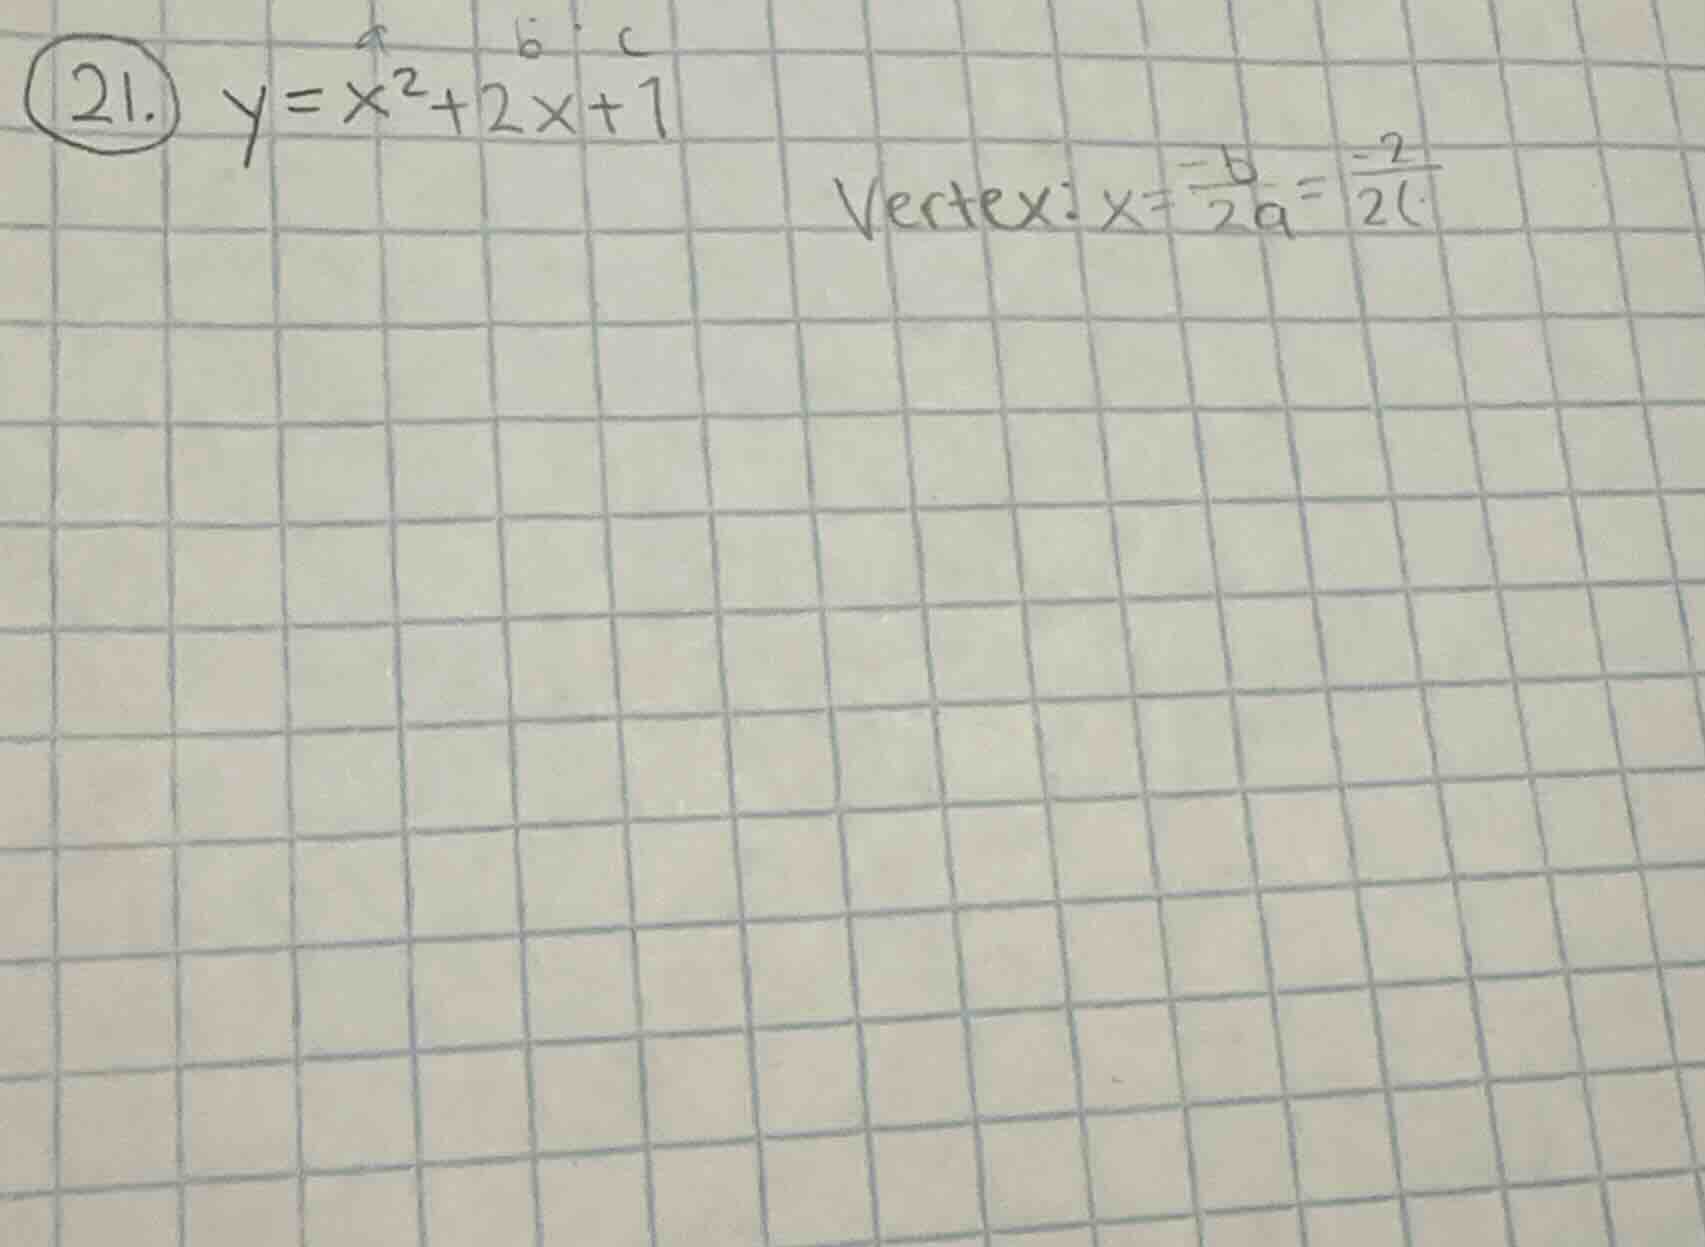 a b c
21. y = x² + 2x + 1
Vertex: x = -b/2a = -2/2(